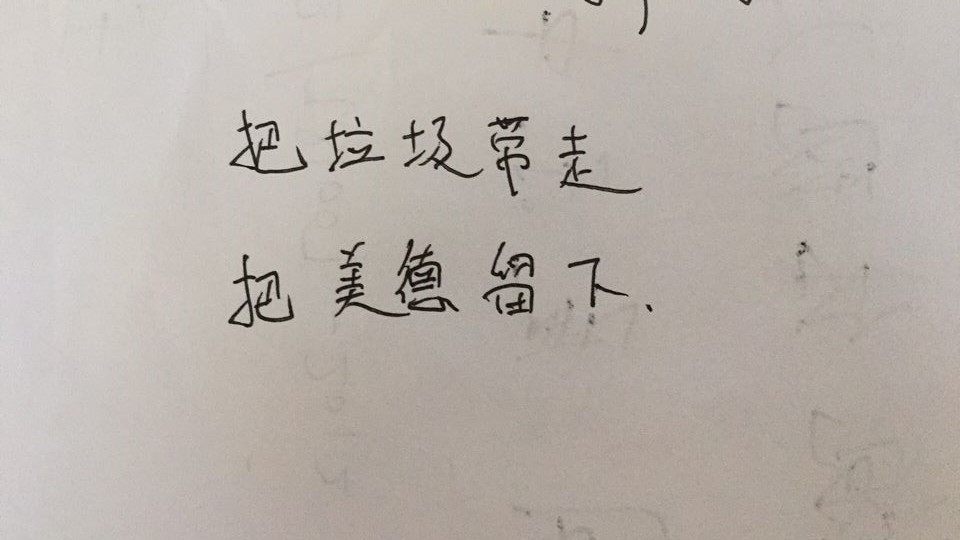 把垃圾带走
把美德留下.